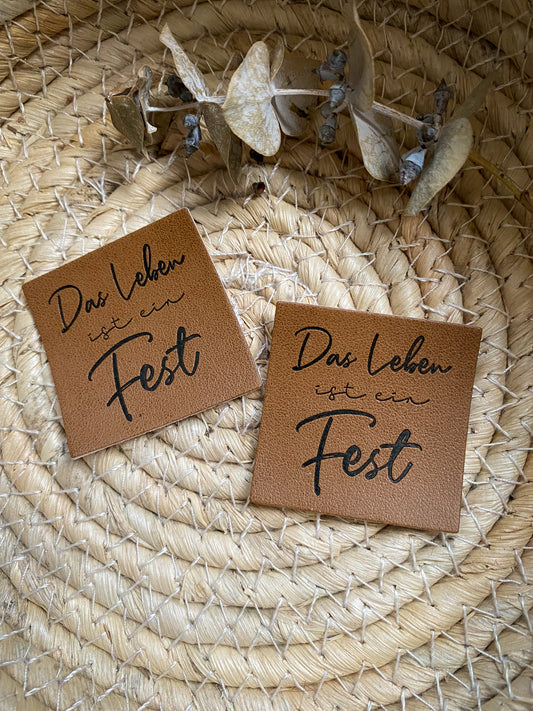 Das Leben
ist ein
Fest
Das Leben
ist ein
Fest